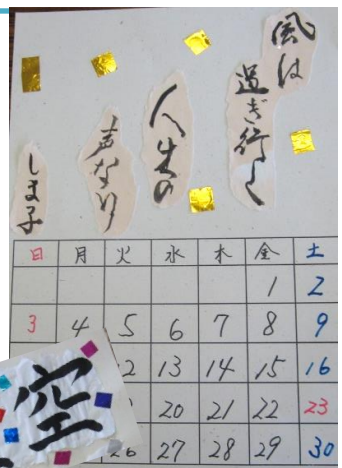 風は
過ぎ行く
人生の
声なり
しま子
日 月 火 水 木 金 土
1 2
3 4 5 6 7 8 9
12 13 14 15 16
20 21 22 23
26 27 28 29 30
空